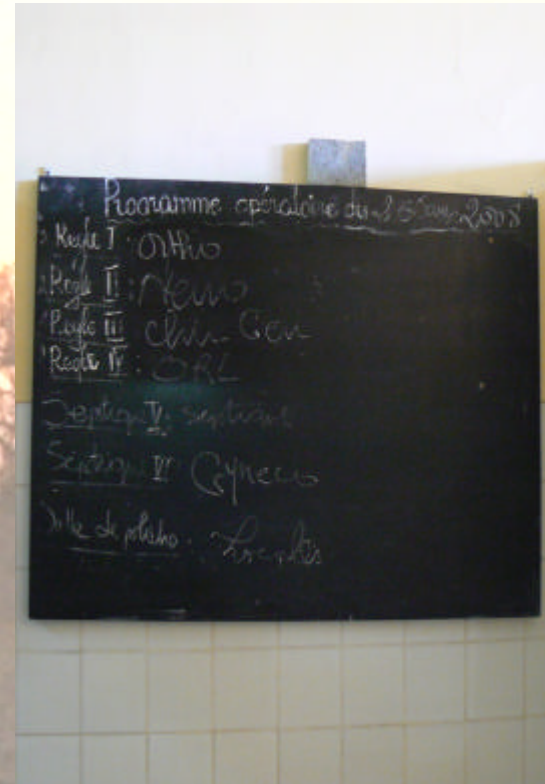 Programme opératoire du 2008
Regle I : Ortho
Regle II : Neuro
Regle III : Chir. Gen
Regle IV : ORL
Septique V :
Septique VI : Gyneco
Salle de plâtre :